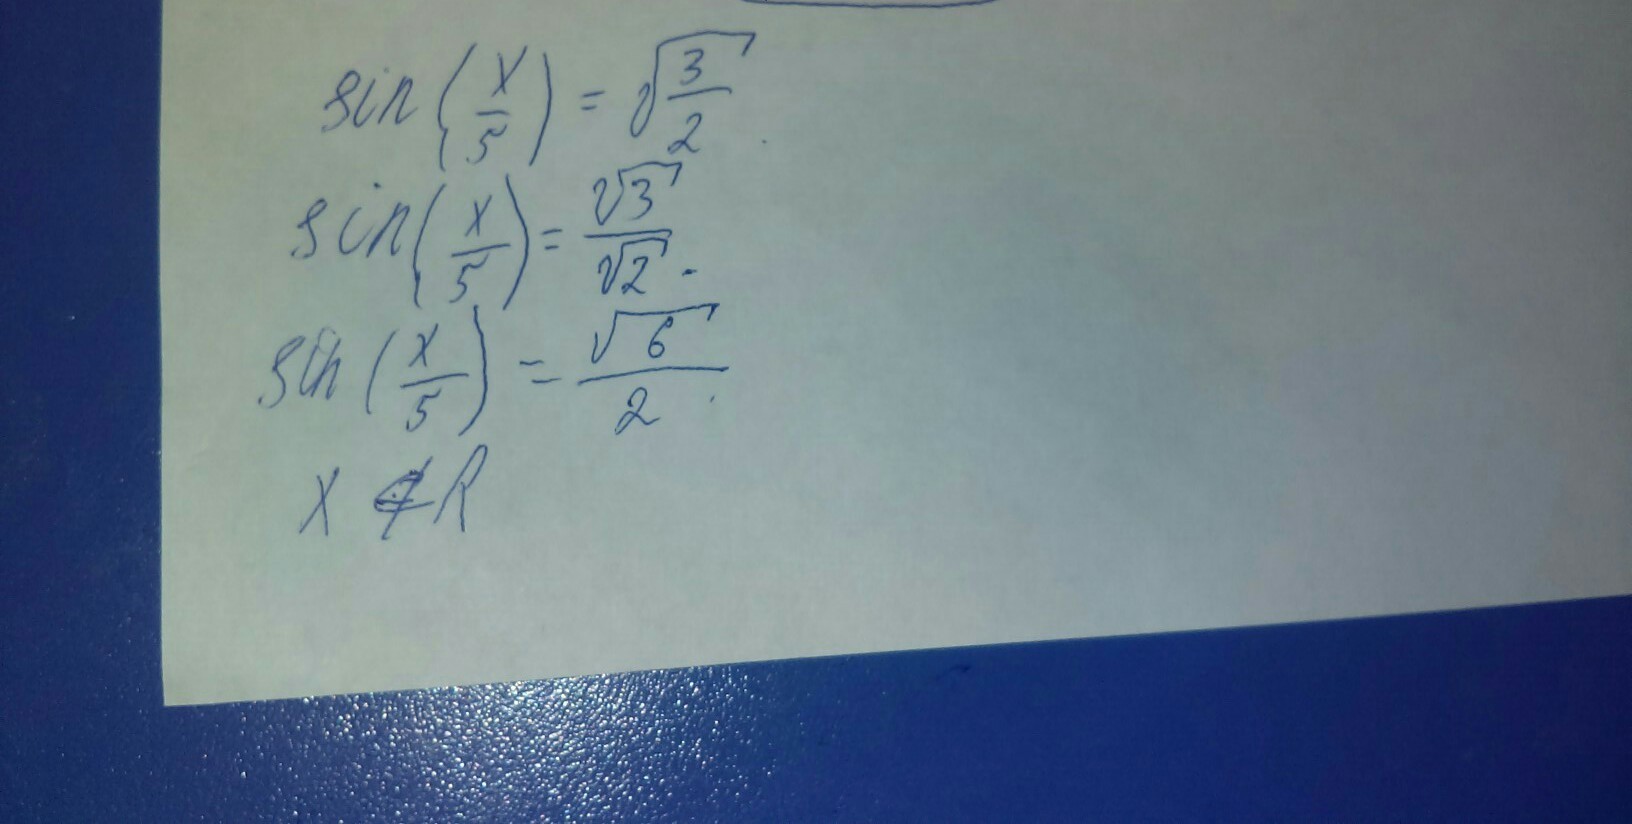 sin(x/5) = √(3/2).
sin(x/5) = √3/√2.
sin(x/5) = √6/2.
x ∉ R